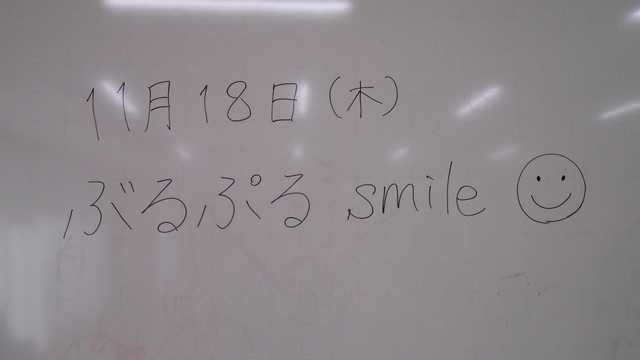 11月18日(木)
ぶるぷる smile